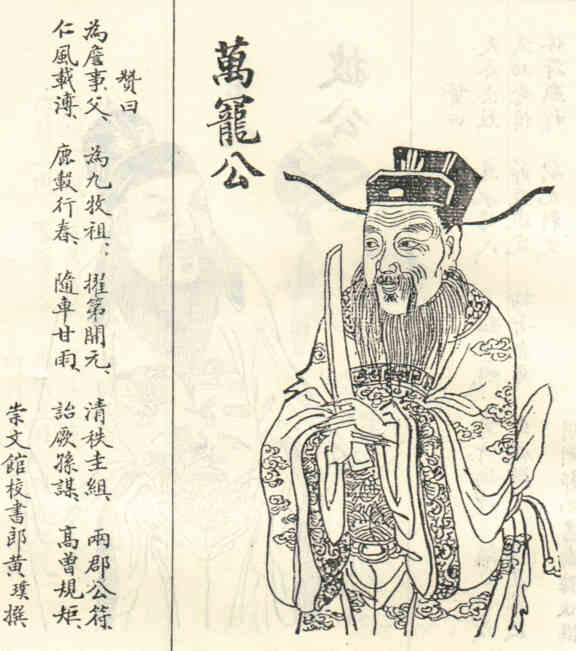 萬寵公
賛曰
為詹事父、為九牧祖、擢第開元、清秩圭組、兩郡公符、
仁風載溥、鹿轂行春、隨車甘雨、詒厥孫謀、高曾規矩、
崇文館校書郎黃璞撰